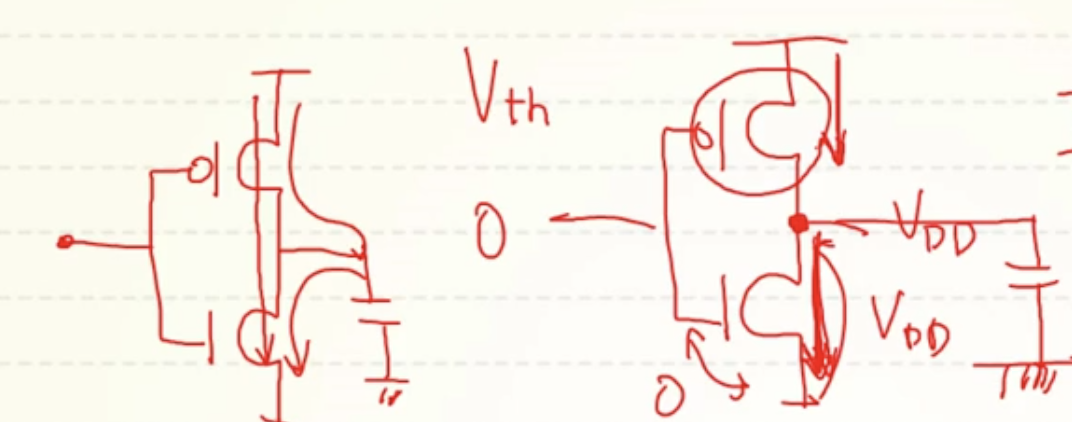 Vth
0
VDD
VDD
0